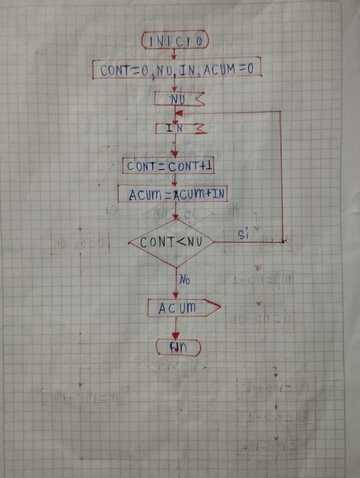 INICIO
CONT=0, NU, IN, ACUM=0
NU
IN
CONT=CONT+1
ACUM=ACUM+IN
CONT<NU
Si
No
ACUM